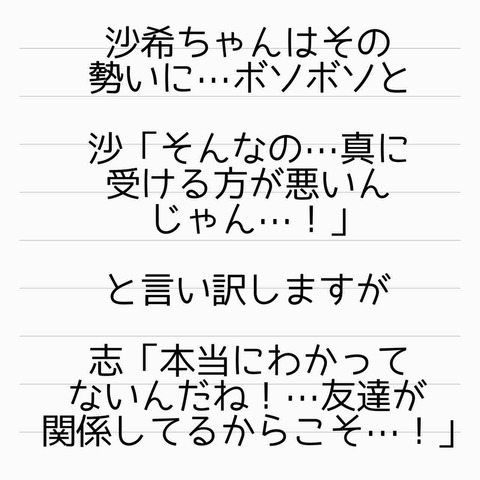 沙希ちゃんはその
勢いに…ボソボソと
沙「そんなの…真に
受ける方が悪いん
じゃん…！」
と言い訳しますが
志「本当にわかって
ないんだね！…友達が
関係してるからこそ…！」